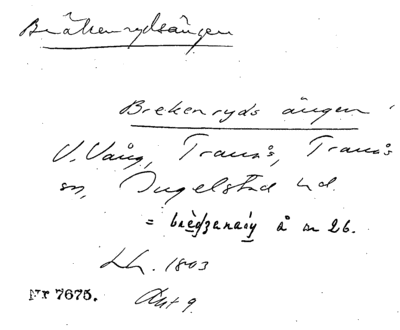 Bräkenrydsängen
Brekenryds ängen
V. Vång, Tranås, Tranås
sn, Ingelstad hd.
= å n 26.
Lh. 1803
Nr 7675. Akt 9.